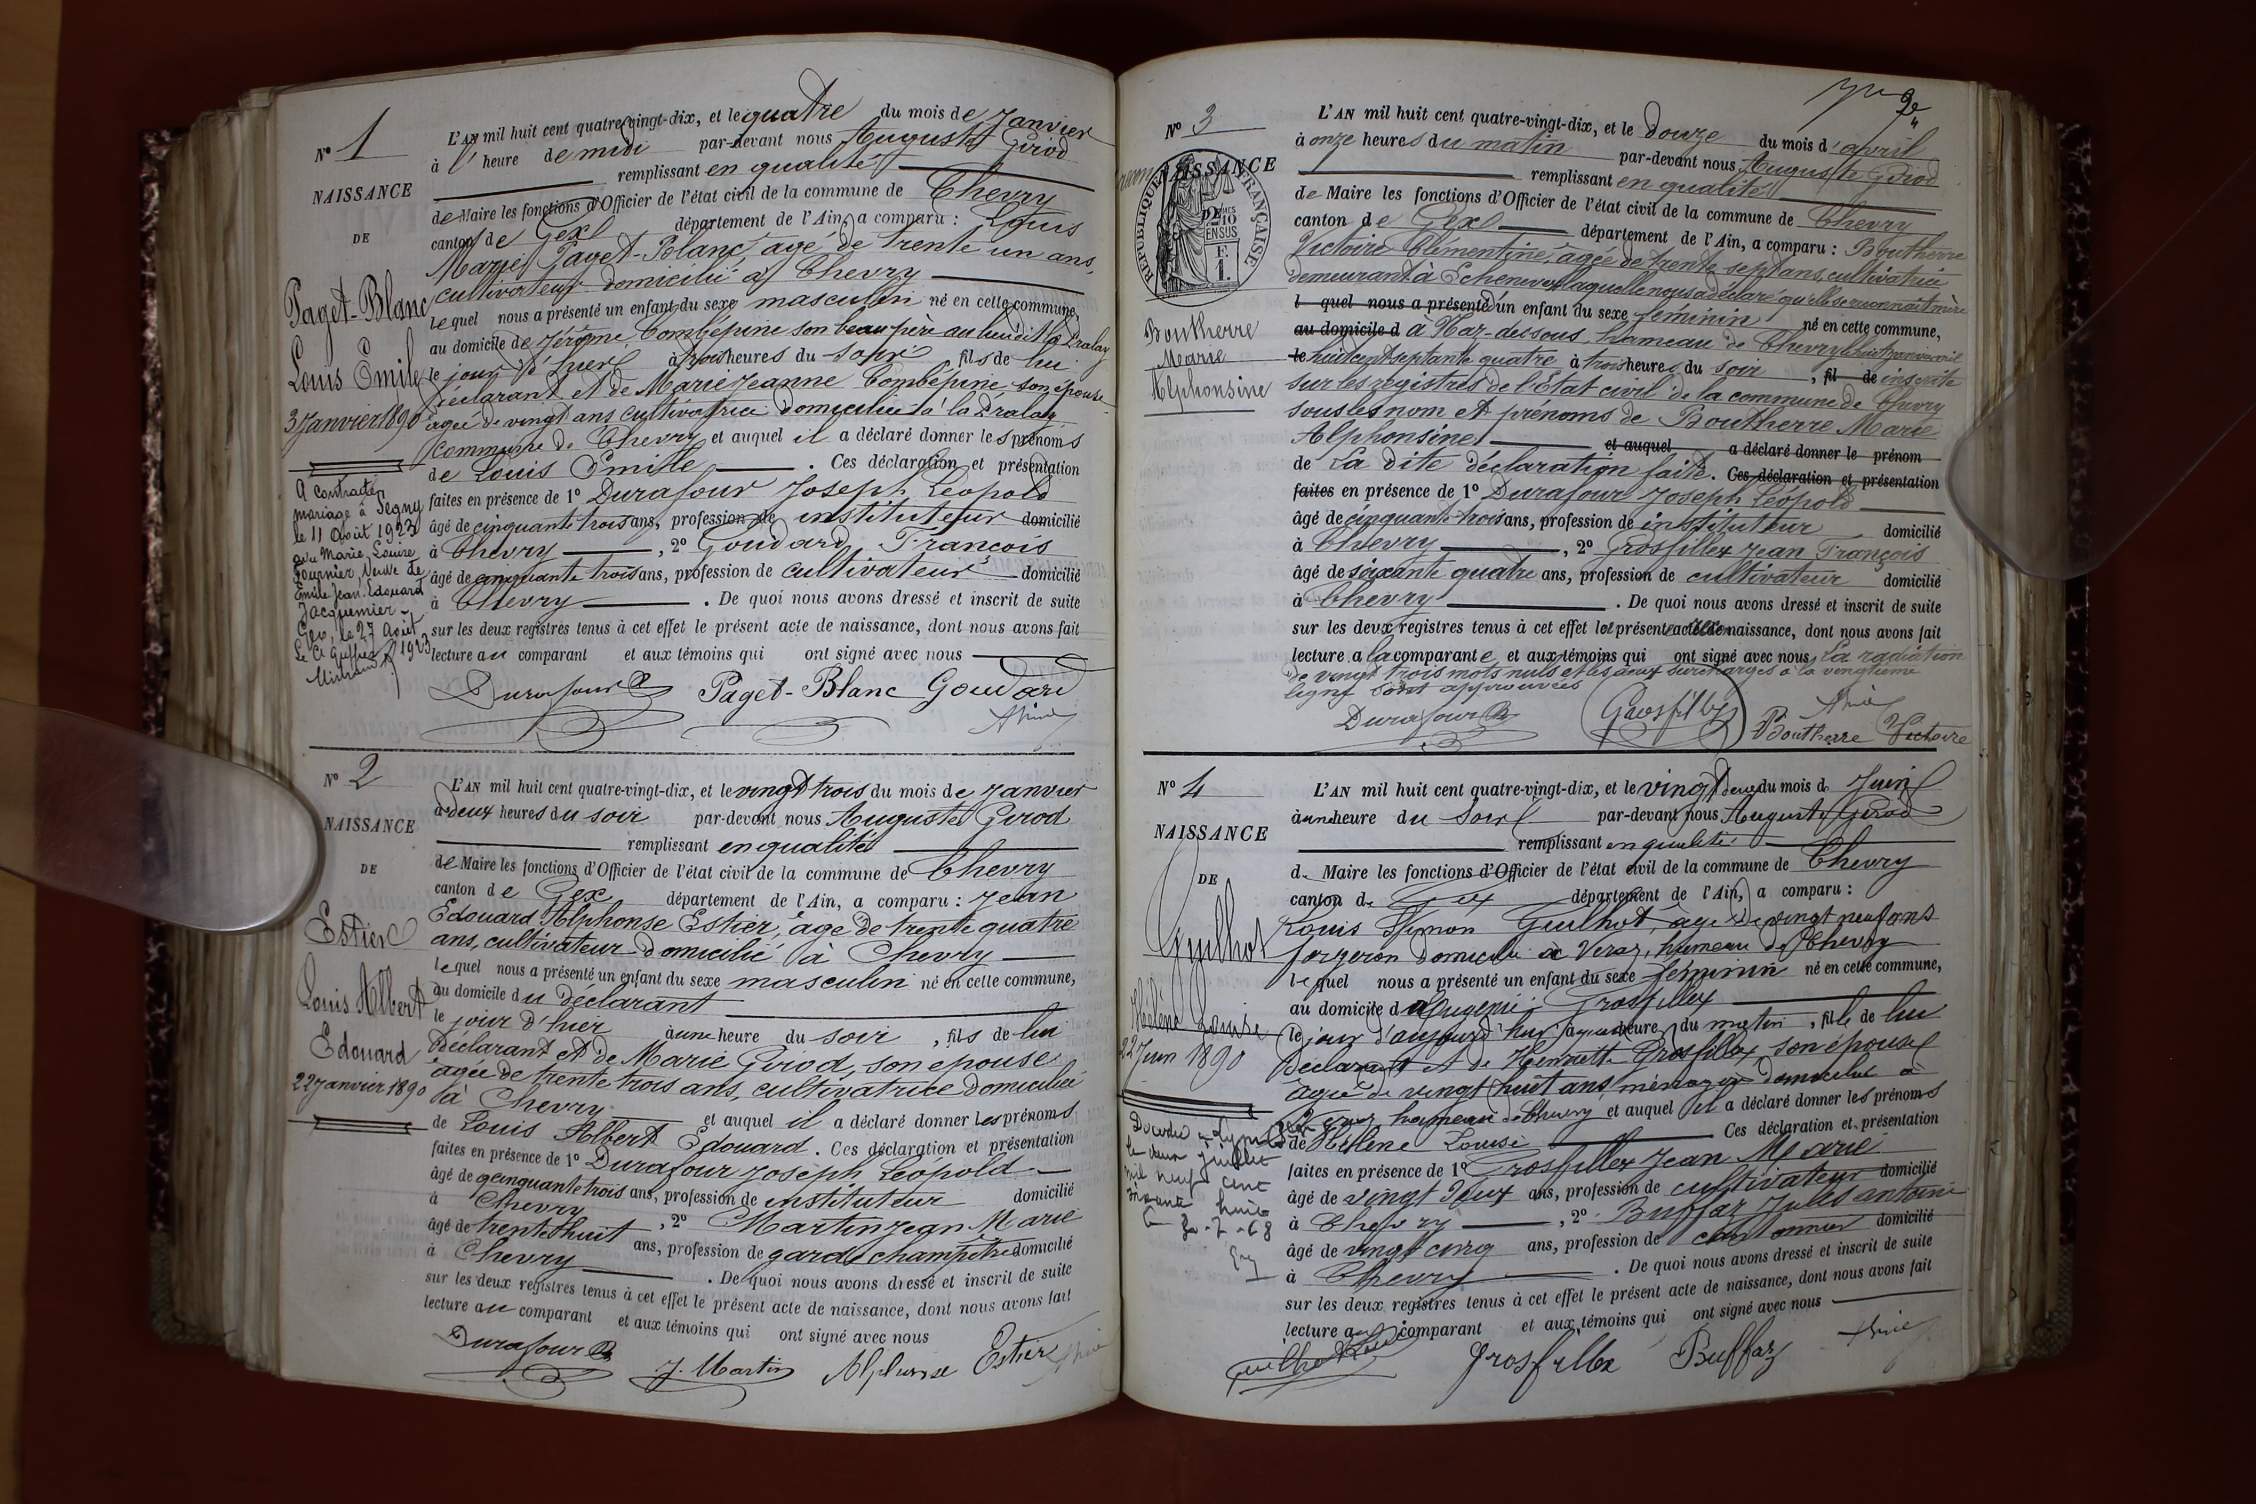 N° 1
NAISSANCE
DE
Paget-Blanc
Louis Emile
3 Janvier 1890
A contracté
mariage à Segny
le 11 Août 1923
avec Marie Louise
Fournier, Veuve de
Emile Jean Edouard
Jacquemier
Gex, le 27 Août 1923
Le Cis Greffier
L'AN mil huit cent quatre-vingt-dix, et le quatre du mois de Janvier
à l' heure de midi par-devant nous Auguste Girod
remplissant en qualité
de Maire les fonctions d'Officier de l'état civil de la commune de Chevry
canton de Gex département de l'Ain, a comparu : Louis
Marie Paget-Blanc, agé de trente un ans,
cultivateur domicilié à Chevry
lequel nous a présenté un enfant du sexe masculin né en cette commune,
au domicile de Jérôme Combépine son beau père au lieu dit la Pralay
le jour d'hier à trois heures du soir fils de lui
déclarant et de Marie Jeanne Combépine son épouse
agée de vingt ans cultivatrice domiciliée à la Pralay
commune de Chevry et auquel il a déclaré donner les prénoms
de Louis Emile . Ces déclaration et présentation
faites en présence de 1° Durafour Joseph Léopold
âgé de cinquante trois ans, profession de instituteur domicilié
à Chevry , 2° Goudard François
âgé de cinquante trois ans, profession de cultivateur domicilié
à Chevry . De quoi nous avons dressé et inscrit de suite
sur les deux registres tenus à cet effet le présent acte de naissance, dont nous avons fait
lecture au comparant et aux témoins qui ont signé avec nous
Durafour Paget-Blanc Goudard
N° 2
NAISSANCE
DE
Estier
Louis Albert
Edouard
22 Janvier 1890
L'AN mil huit cent quatre-vingt-dix, et le vingt trois du mois de Janvier
à deux heures du soir par-devant nous Auguste Girod
remplissant en qualité
de Maire les fonctions d'Officier de l'état civil de la commune de Chevry
canton de Gex département de l'Ain, a comparu : Jean
Edouard Alphonse Estier, âgé de trente quatre
ans, cultivateur domicilié à Chevry
lequel nous a présenté un enfant du sexe masculin né en cette commune,
au domicile du déclarant
le jour d'hier à une heure du soir , fils de lui
Déclarant et de Marie Girod, son épouse
âgée de trente trois ans, cultivatrice domiciliée
à Chevry et auquel il a déclaré donner les prénoms
de Louis Albert Edouard . Ces déclaration et présentation
faites en présence de 1° Durafour Joseph Léopold
âgé de cinquante trois ans, profession de instituteur domicilié
à Chevry , 2° Martin Jean Marie
âgé de trente huit ans, profession de garde champêtre domicilié
à Chevry . De quoi nous avons dressé et inscrit de suite
sur les deux registres tenus à cet effet le présent acte de naissance, dont nous avons fait
lecture au comparant et aux témoins qui ont signé avec nous
Durafour J. Martin Alphonse Estier
N° 3
NAISSANCE
RÉPUBLIQUE FRANÇAISE
Boutherre
Marie
Alphonsine
L'AN mil huit cent quatre-vingt-dix, et le douze du mois d'avril
à onze heures du matin par-devant nous Auguste Girod
remplissant en qualité
de Maire les fonctions d'Officier de l'état civil de la commune de Chevry
canton de Gex département de l'Ain, a comparu : Boutherre
Victoire Clémentine, agée de trente sept ans, cultivatrice
demeurant à Echenevex laquelle nous a déclaré qu'elle se reconnaît mère
l quel nous a présenté d'un enfant du sexe féminin né en cette commune,
au domicile d à Naz-dessous, hameau de Chevry le huit janvier mil
le huit cent septante quatre à trois heures du soir , fil de inscrite
sur les registres de l'Etat civil de la commune de Chevry
sous les nom et prénoms de Boutherre Marie
Alphonsine et auquel a déclaré donner le prénom
de La dite déclaration faite. Ces déclaration et présentation
faites en présence de 1° Durafour Joseph Léopold
âgé de cinquante trois ans, profession de instituteur domicilié
à Chevry , 2° Grosfillex Jean François
âgé de soixante quatre ans, profession de cultivateur domicilié
à Chevry . De quoi nous avons dressé et inscrit de suite
sur les deux registres tenus à cet effet le présent acte de naissance, dont nous avons fait
lecture a la comparante et aux témoins qui ont signé avec nous La radiation
de vingt trois mots nuls et les deux surcharges à la vingtième
ligne sont approuvées
Durafour Grosfillex Boutherre Victoire
N° 4
NAISSANCE
DE
Guilhot
Hélène Louise
22 Juin 1890
Décédée à
le deux juillet
mil neuf cent
soixante huit
L'AN mil huit cent quatre-vingt-dix, et le vingt deux du mois d Juin
à une heure du soir par-devant nous Auguste Girod
remplissant en qualité
de Maire les fonctions d'Officier de l'état civil de la commune de Chevry
canton de Gex département de l'Ain, a comparu :
Louis Simon Guilhot, agé de vingt neuf ans
forgeron domicilié à Veraz, hameau de Chevry
lequel nous a présenté un enfant du sexe féminin né en cette commune,
au domicile d'Eugénie Grosfillex
le jour d'aujourd'hui à une heure du matin , fille de lui
Déclarant et de Henriette Grosfillex, son épouse
âgée de vingt huit ans, ménagère domiciliée à
Veraz hameau de Chevry et auquel il a déclaré donner les prénoms
de Hélène Louise Ces déclaration et présentation
faites en présence de 1° Grosfillex Jean Marie
âgé de vingt deux ans, profession de cultivateur domicilié
à Chevry , 2° Buffaz Jules Antoine
âgé de vingt cinq ans, profession de cantonnier domicilié
à Chevry . De quoi nous avons dressé et inscrit de suite
sur les deux registres tenus à cet effet le présent acte de naissance, dont nous avons fait
lecture au comparant et aux témoins qui ont signé avec nous
Grosfillex Buffaz